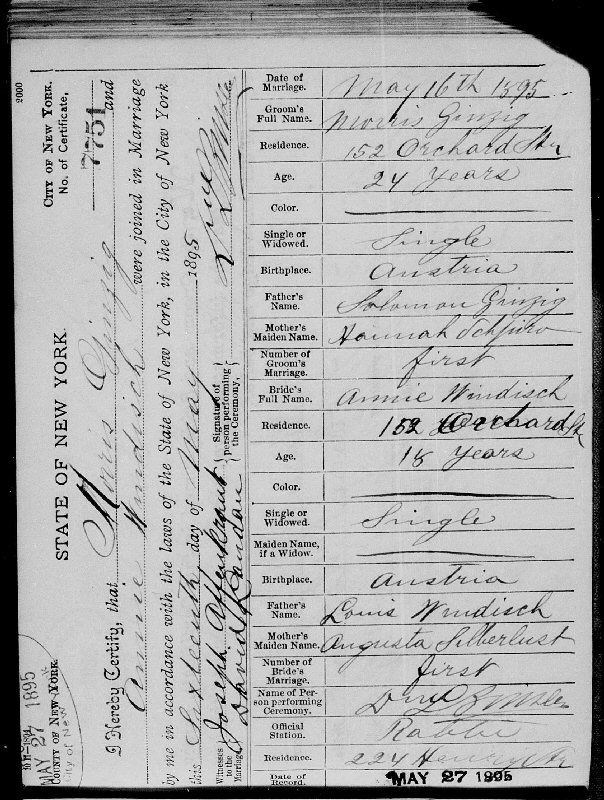 STATE OF NEW YORK.
CITY OF NEW YORK.
No. of Certificate,
7751
2000
I Hereby Certify, that Morris Ginzig and
Annie Windisch were joined in Marriage
by me in accordance with the laws of the State of New York, in the City of New York
this Sixteenth day of May 1895
Witnesses to the Marriage
Joseph
David Landau
Signature of person performing the Ceremony,
COUNTY OF NEW YORK
City of New
MAY 27 1895
Date of Marriage. May 16th 1895
Groom's Full Name. Morris Ginzig
Residence. 152 Orchard Str
Age. 24 Years
Color.
Single or Widowed. Single
Birthplace. Austria
Father's Name. Solomon Ginzig
Mother's Maiden Name. Hannah
Number of Groom's Marriage. first
Bride's Full Name. Annie Windisch
Residence. 152 Orchard Str
Age. 18 Years
Color.
Single or Widowed. Single
Maiden Name, if a Widow.
Birthplace. Austria
Father's Name. Louis Windisch
Mother's Maiden Name. Augusta Silberlust
Number of Bride's Marriage. first
Name of Person performing Ceremony.
Official Station. Rabbi
Residence. 224 Henry Str
Date of Record. MAY 27 1895